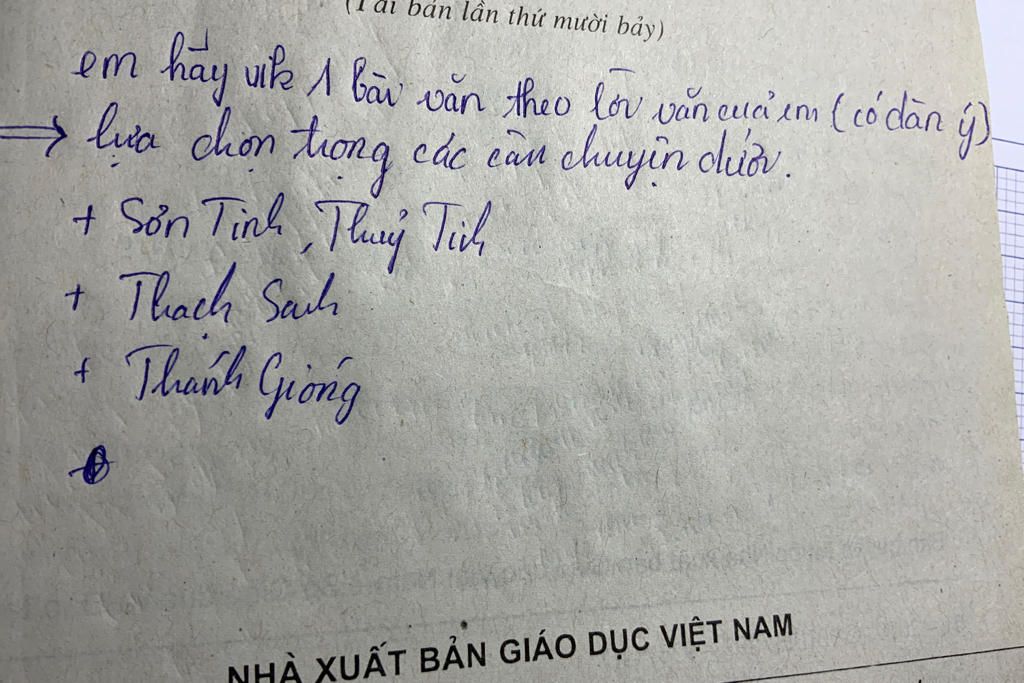 (Tái bản lần thứ mười bảy)
em hãy viết 1 bài văn theo lời văn của em (có dàn ý)
⇒ lựa chọn trong các câu chuyện dưới.
+ Sơn Tinh, Thuỷ Tinh
+ Thạch Sanh
+ Thánh Gióng
NHÀ XUẤT BẢN GIÁO DỤC VIỆT NAM